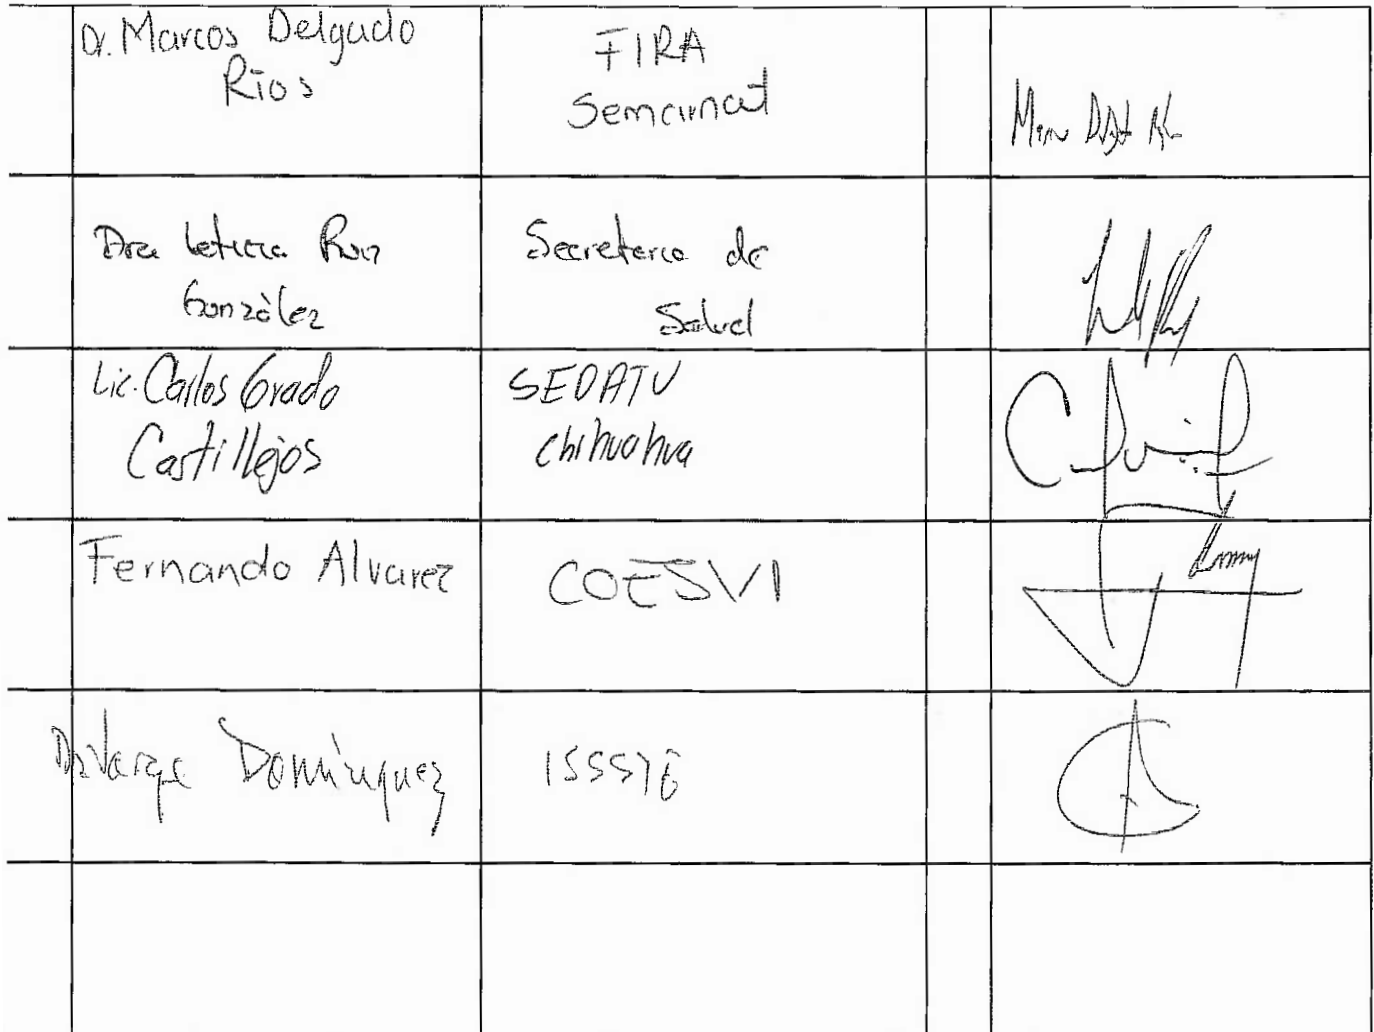 Dr. Marcos Delgado
Rios
FIRA
Semarnat
Dra Leticia Ruiz
González
Secretaria de
Salud
Lic. Carlos Grado
Castillejos
SEDATU
Chihuahua
Fernando Alvarez
COESVI
Domínguez
ISSSTE